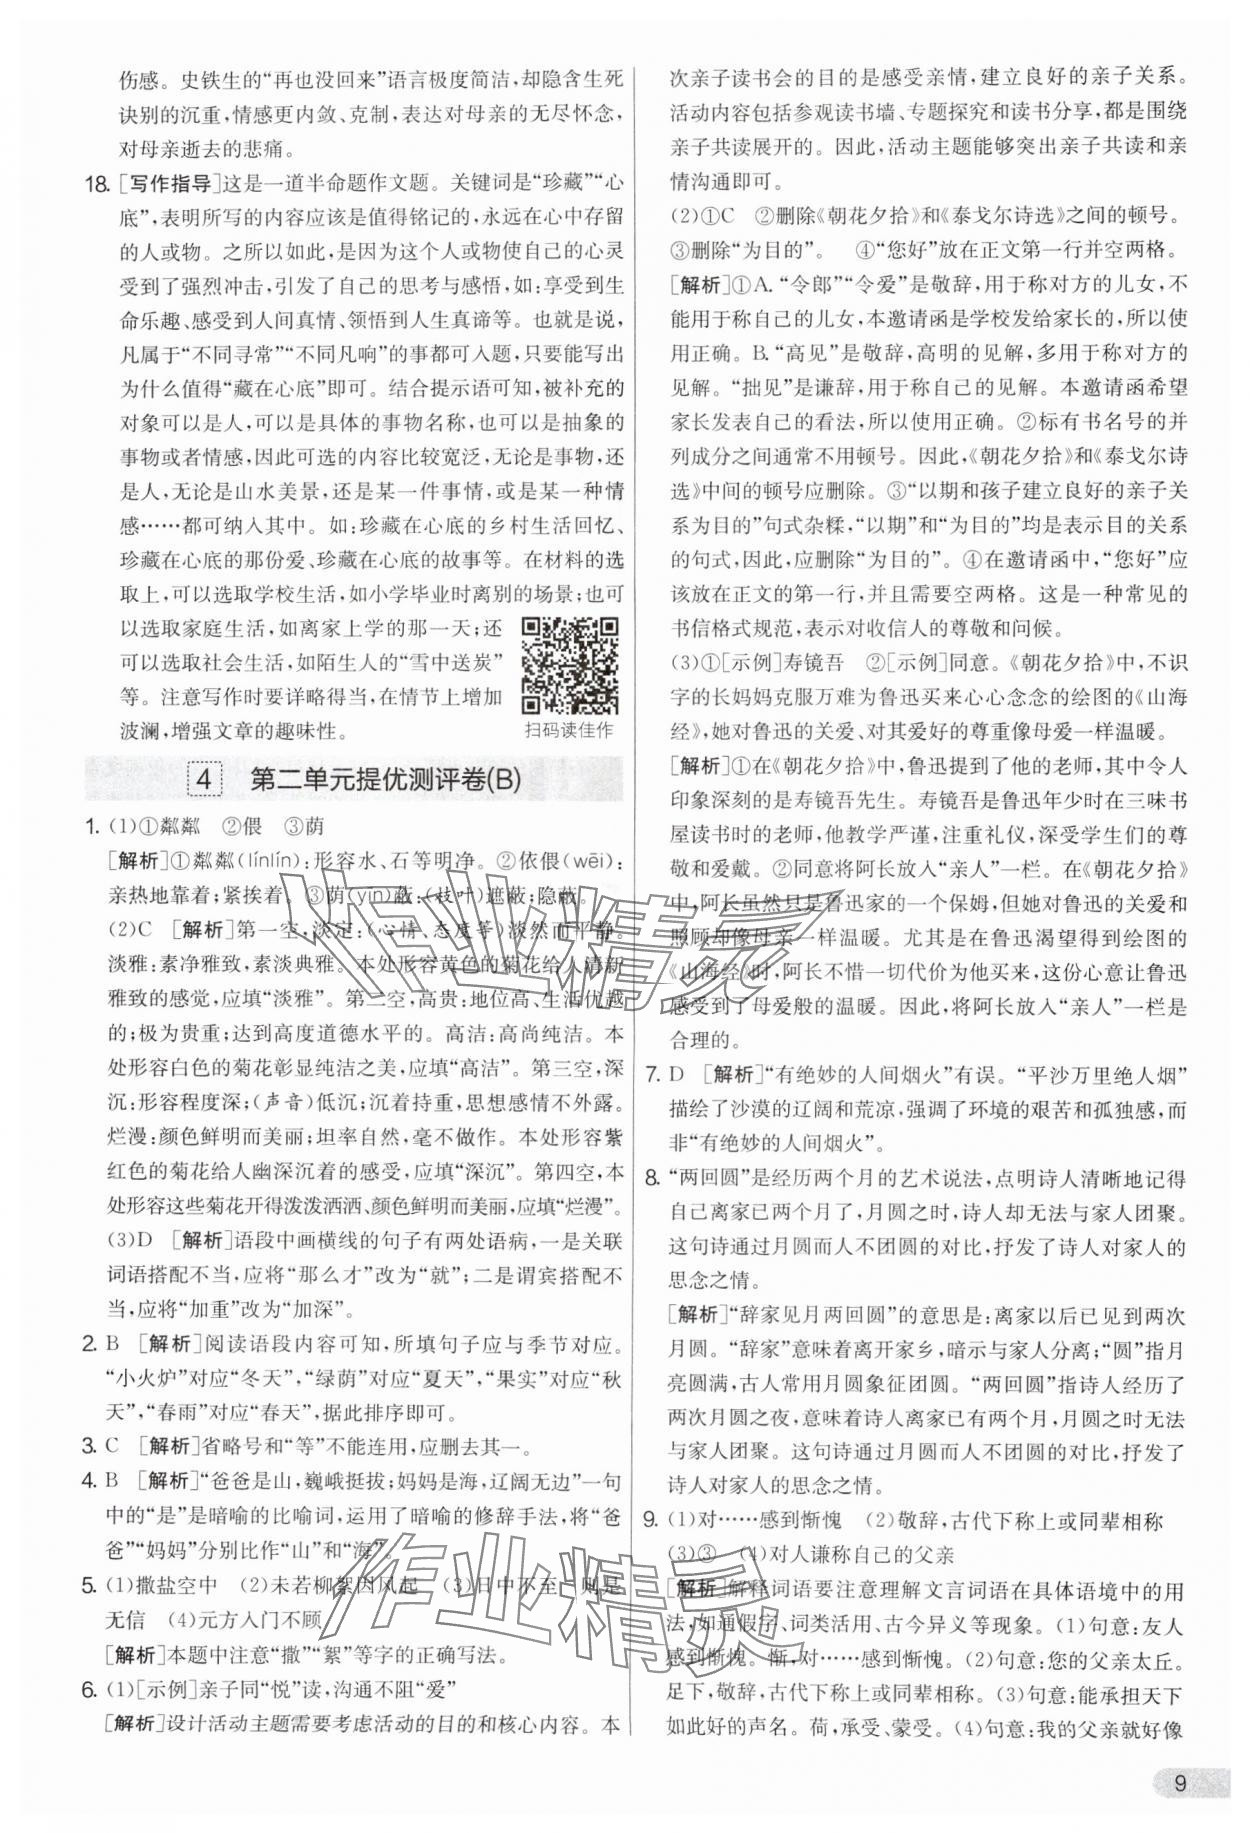 伤感。史铁生的“再也没回来”语言极度简洁,却隐含生死
诀别的沉重,情感更内敛、克制,表达对母亲的无尽怀念,
对母亲逝去的悲痛。
18. [写作指导]这是一道半命题作文题。关键词是“珍藏”“心
底”,表明所写的内容应该是值得铭记的,永远在心中存留
的人或物。之所以如此,是因为这个人或物使自己的心灵
受到了强烈冲击,引发了自己的思考与感悟,如:享受到生
命乐趣、感受到人间真情、领悟到人生真谛等。也就是说,
凡属于“不同寻常”“不同凡响”的事都可入题,只要能写出
为什么值得“藏在心底”即可。结合提示语可知,被补充的
对象可以是人,可以是具体的事物名称,也可以是抽象的
事物或者情感,因此可选的内容比较宽泛,无论是事物,还
是人,无论是山水美景,还是某一件事情,或是某一种情
感……都可纳入其中。如:珍藏在心底的乡村生活回忆、
珍藏在心底的那份爱、珍藏在心底的故事等。在材料的选
取上,可以选取学校生活,如小学毕业时离别的场景;也可
以选取家庭生活,如离家上学的那一天;还
可以选取社会生活,如陌生人的“雪中送炭”
等。注意写作时要详略得当,在情节上增加
波澜,增强文章的趣味性。
扫码读佳作
4 第二单元提优测评卷(B)
1. (1)①粼粼 ②偎 ③荫
[解析]①粼粼(línlín):形容水、石等明净。②依偎(wēi):
亲热地靠着;紧挨着。③荫(yīn)蔽:(枝叶)遮蔽;隐蔽。
(2)C [解析]第一空,淡定:(心情、态度等)淡然而平静。
淡雅:素净雅致,素淡典雅。本处形容黄色的菊花给人清新
雅致的感觉,应填“淡雅”。第二空,高贵:地位高、生活优越
的;极为贵重;达到高度道德水平的。高洁:高尚纯洁。本
处形容白色的菊花彰显纯洁之美,应填“高洁”。第三空,深
沉:形容程度深;(声音)低沉;沉着持重,思想感情不外露。
烂漫:颜色鲜明而美丽;坦率自然,毫不做作。本处形容紫
红色的菊花给人幽深沉着的感受,应填“深沉”。第四空,本
处形容这些菊花开得泼泼洒洒、颜色鲜明而美丽,应填“烂漫”。
(3)D [解析]语段中画横线的句子有两处语病,一是关联
词语搭配不当,应将“那么才”改为“就”;二是谓宾搭配不
当,应将“加重”改为“加深”。
2. B [解析]阅读语段内容可知,所填句子应与季节对应。
“小火炉”对应“冬天”,“绿荫”对应“夏天”,“果实”对应“秋
天”,“春雨”对应“春天”,据此排序即可。
3. C [解析]省略号和“等”不能连用,应删去其一。
4. B [解析]“爸爸是山,巍峨挺拔;妈妈是海,辽阔无边”一句
中的“是”是暗喻的比喻词,运用了暗喻的修辞手法,将“爸
爸”“妈妈”分别比作“山”和“海”。
5. (1)撒盐空中 (2)未若柳絮因风起 (3)日中不至 则是
无信 (4)元方入门不顾
[解析]本题中注意“撒”“絮”等字的正确写法。
6. (1)[示例]亲子同“悦”读,沟通不阻“爱”
[解析]设计活动主题需要考虑活动的目的和核心内容。本
次亲子读书会的目的是感受亲情,建立良好的亲子关系。
活动内容包括参观读书墙、专题探究和读书分享,都是围绕
亲子共读展开的。因此,活动主题能够突出亲子共读和亲
情沟通即可。
(2)①C ②删除《朝花夕拾》和《泰戈尔诗选》之间的顿号。
③删除“为目的”。 ④“您好”放在正文第一行并空两格。
[解析]①A.“令郎”“令爱”是敬辞,用于称对方的儿女,不
能用于称自己的儿女,本邀请函是学校发给家长的,所以使
用正确。B.“高见”是敬辞,高明的见解,多用于称对方的
见解。“拙见”是谦辞,用于称自己的见解。本邀请函希望
家长发表自己的看法,所以使用正确。②标有书名号的并
列成分之间通常不用顿号。因此,《朝花夕拾》和《泰戈尔诗
选》中间的顿号应删除。③“以期和孩子建立良好的亲子关
系为目的”句式杂糅,“以期”和“为目的”均是表示目的关系
的句式,因此,应删除“为目的”。④在邀请函中,“您好”应
该放在正文的第一行,并且需要空两格。这是一种常见的
书信格式规范,表示对收信人的尊敬和问候。
(3)①[示例]寿镜吾 ②[示例]同意。《朝花夕拾》中,不识
字的长妈妈克服万难为鲁迅买来心心念念的绘图的《山海
经》,她对鲁迅的关爱、对其爱好的尊重像母爱一样温暖。
[解析]①在《朝花夕拾》中,鲁迅提到了他的老师,其中令人
印象深刻的是寿镜吾先生。寿镜吾是鲁迅年少时在三味书
屋读书时的老师,他教学严谨,注重礼仪,深受学生们的尊
敬和爱戴。②同意将阿长放入“亲人”一栏。在《朝花夕拾》
中,阿长虽然只是鲁迅家的一个保姆,但她对鲁迅的关爱和
照顾却像母亲一样温暖。尤其是在鲁迅渴望得到绘图的
《山海经》时,阿长不惜一切代价为他买来,这份心意让鲁迅
感受到了母爱般的温暖。因此,将阿长放入“亲人”一栏是
合理的。
7. D [解析]“有绝妙的人间烟火”有误。“平沙万里绝人烟”
描绘了沙漠的辽阔和荒凉,强调了环境的艰苦和孤独感,而
非“有绝妙的人间烟火”。
8. “两回圆”是经历两个月的艺术说法,点明诗人清晰地记得
自己离家已两个月了,月圆之时,诗人却无法与家人团聚。
这句诗通过月圆而人不团圆的对比,抒发了诗人对家人的
思念之情。
[解析]“辞家见月两回圆”的意思是:离家以后已见到两次
月圆。“辞家”意味着离开家乡,暗示与家人分离;“圆”指月
亮圆满,古人常用月圆象征团圆。“两回圆”指诗人经历了
两次月圆之夜,意味着诗人离家已有两个月,月圆之时无法
与家人团聚。这句诗通过月圆而人不团圆的对比,抒发了
诗人对家人的思念之情。
9. (1)对……感到惭愧 (2)敬辞,古代下称上或同辈相称
(3)③ (4)对人谦称自己的父亲
[解析]解释词语要注意理解文言词语在具体语境中的用
法,如通假字、词类活用、古今异义等现象。(1)句意:友人
感到惭愧。惭,对……感到惭愧。(2)句意:您的父亲太丘。
足下,敬辞,古代下称上或同辈相称。(3)句意:能承担天下
如此好的声名。荷,承受、蒙受。(4)句意:我的父亲就好像
9
作业精灵
作业精灵